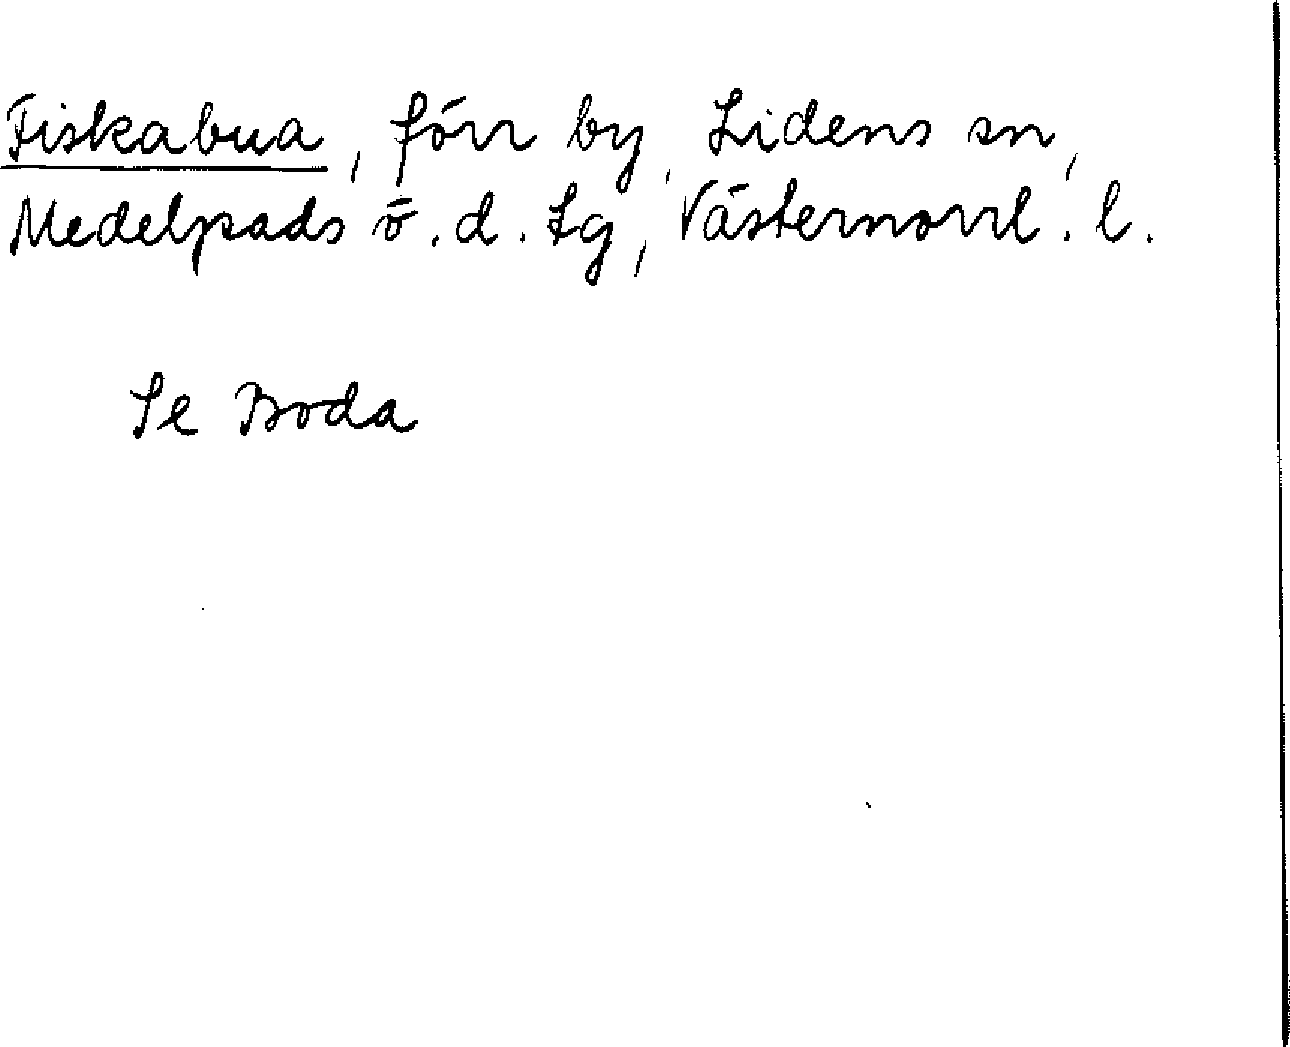 Fiskabua, förr by, Lidens sn,
Medelpads ö. d. tg, Västernorrl. l.
Se Boda